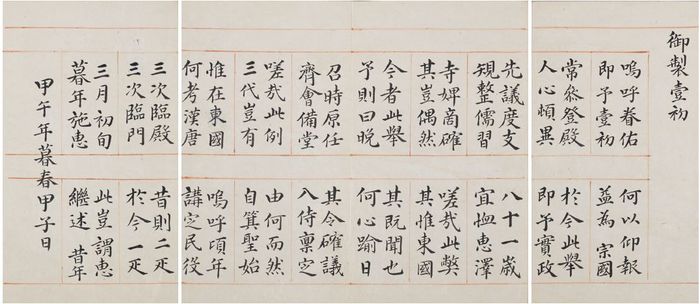 御製壹初
嗚呼春佑 何以仰報
即予壹初 益為宗國
常叅登殿 於今此舉
人心頓異 即予實政
先議度支 八十一歲
規整儒習 宜恤惠澤
寺婢商確 嗟哉此弊
其豈偶然 其惟東國
今者此舉 其既聞也
予則曰晚 何心踰日
召時原任 其令確議
齊會備堂 入侍稟定
嗟哉此例 由何而然
三代豈有 自箕聖始
惟在東國 嗚呼頃年
何考漢唐 講定民役
三次臨殿 昔則二疋
三次臨門 於今一疋
三月初旬 此豈謂惠
暮年施惠 繼述昔年
甲午年暮春甲子日